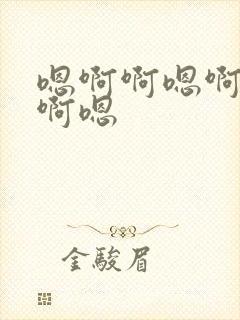 嗯啊啊嗯啊
啊嗯
金駿眉